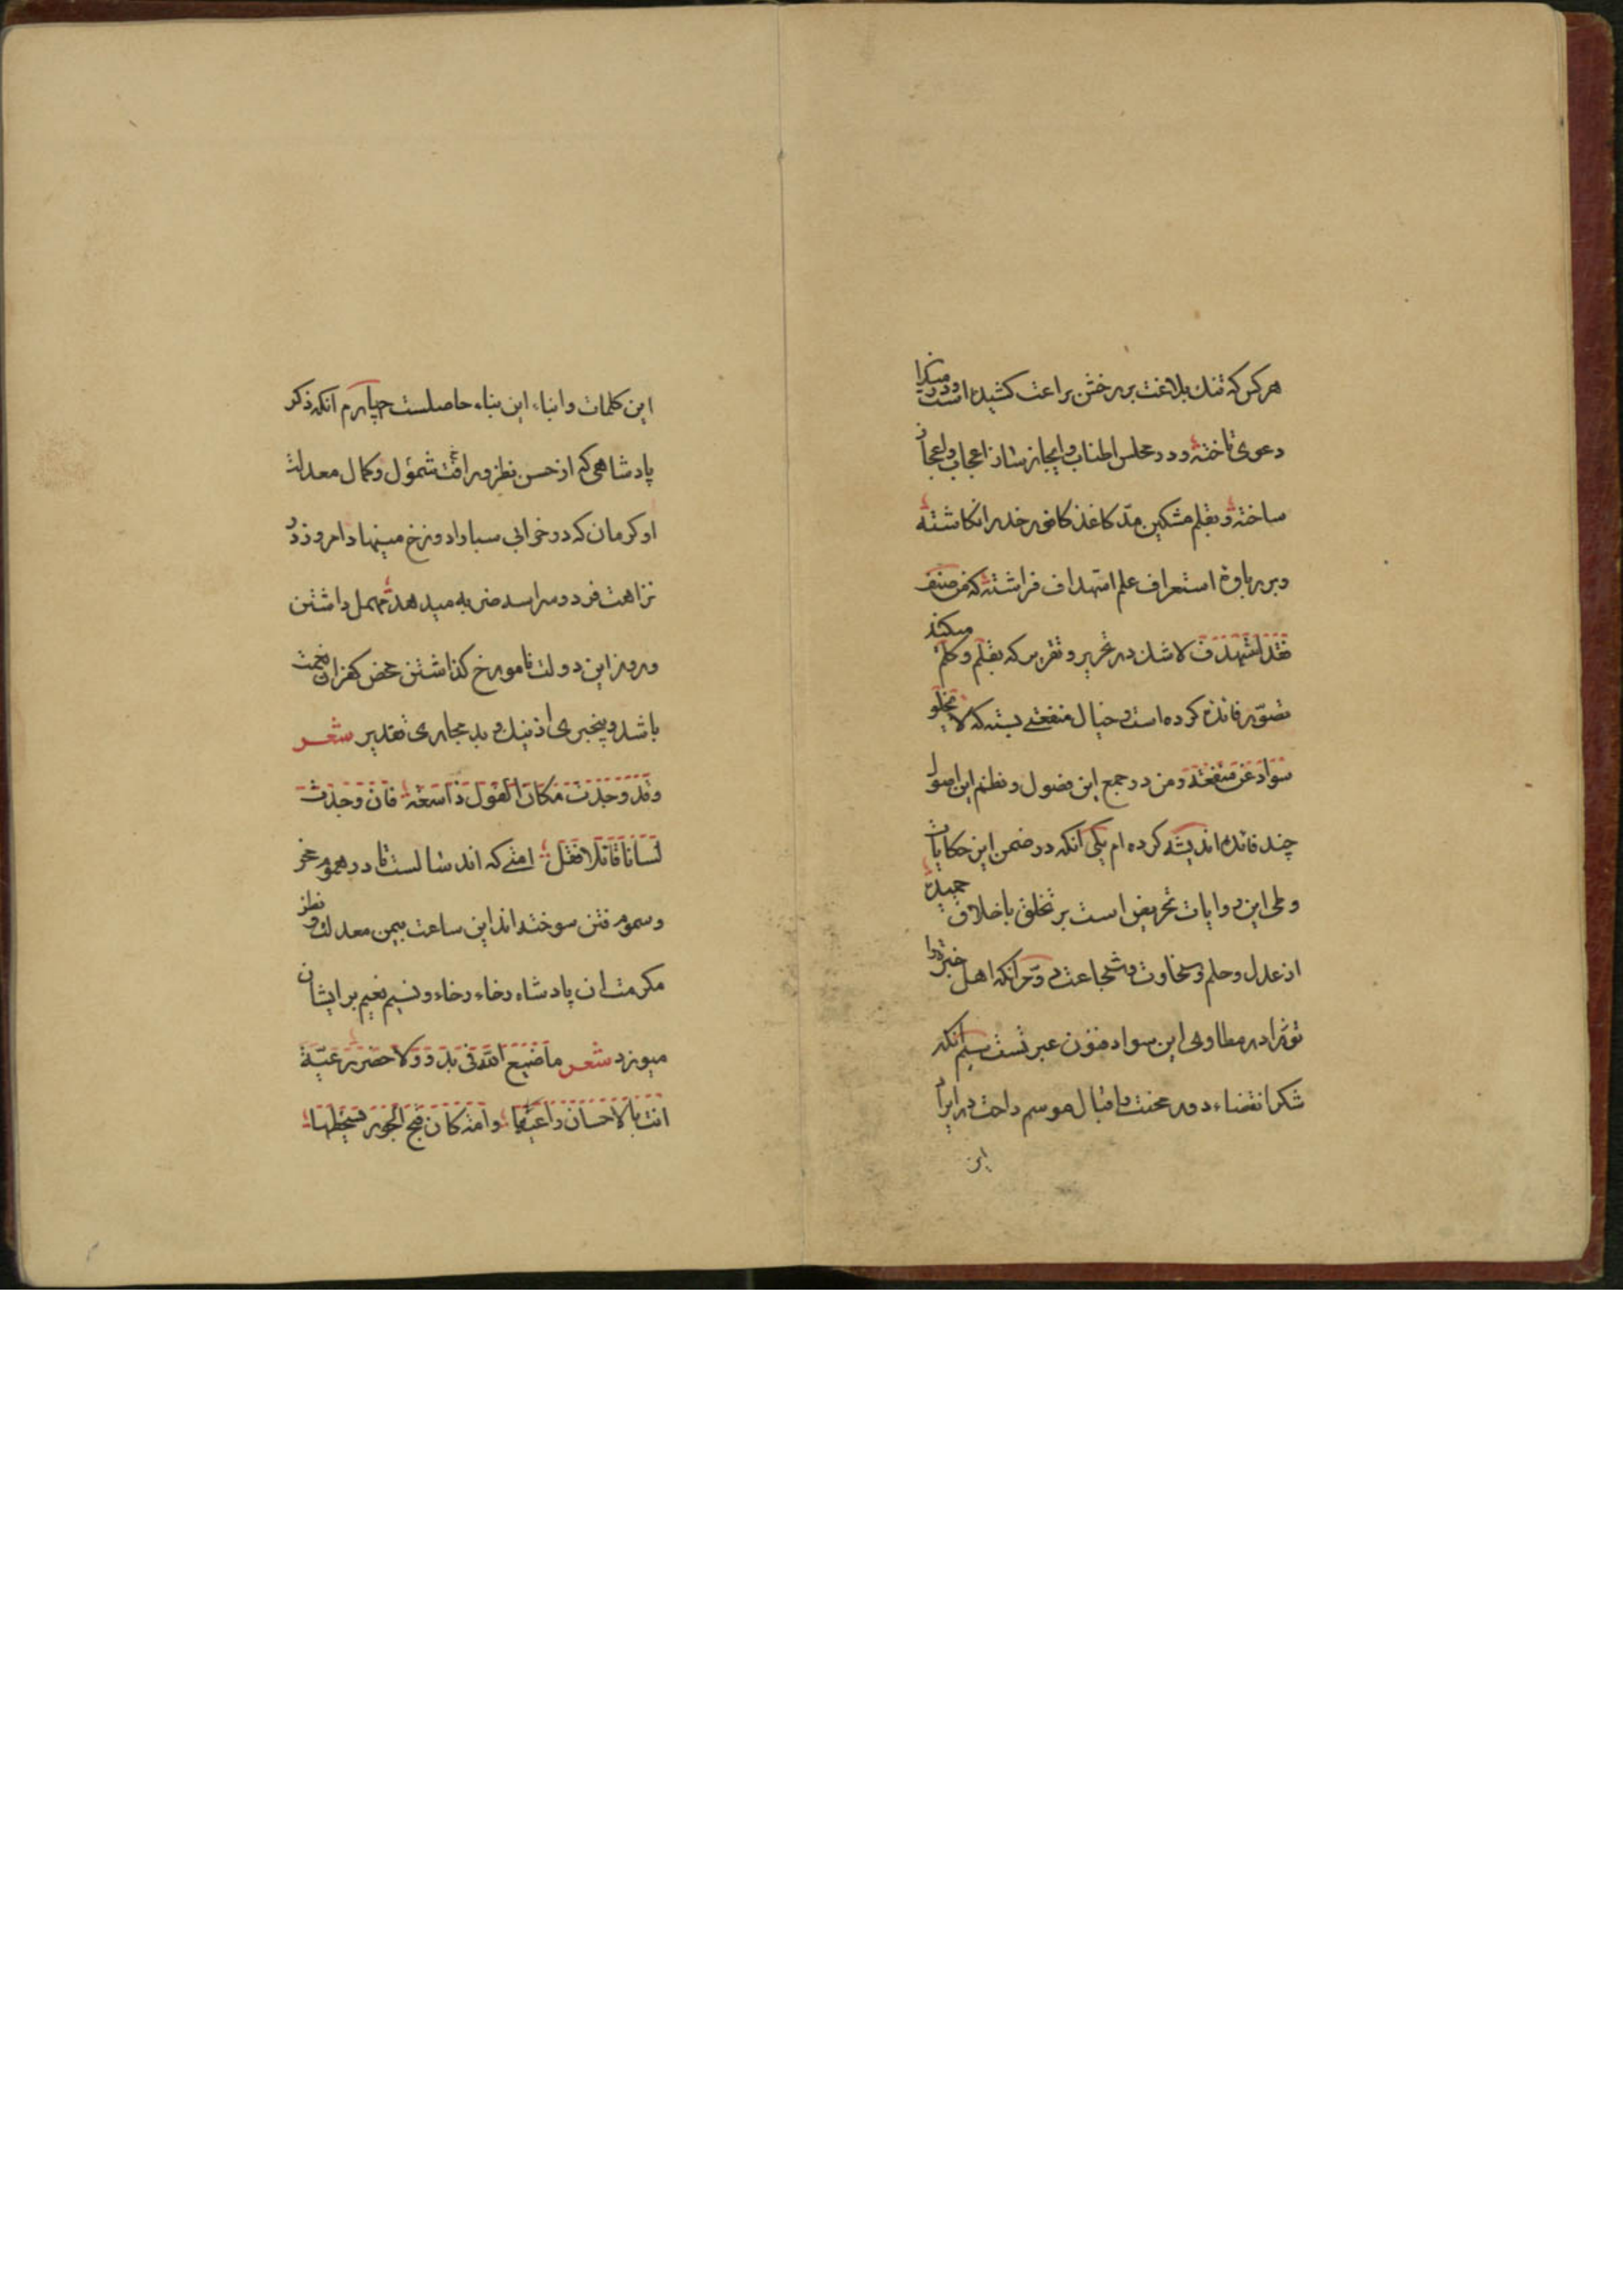 هرکس که تنک بلاغت بر رخش براعت کشیده است و در میدان
دعوی تاخته و در مجلس اطناب و ایجاز ساز اعجاب و اعجاز
ساخته و بقلم مشکین مد کاغذ کافور خد را نکاشته
و بر رباوۀ استعراف علم استهداف فراشته که من صنف
فقد استهدف لا شک در تحریر و تقریر که بقلم و کلم میکند
تصور فائده کرده است و خیال منفعتی بسته که لا یخلو
سواد عن منفعة و من در جمع این فصول و نظم این اصول
چند فائده اندیشه کرده ام یکی آنکه در ضمن این حکایات
و طی این روایات تحریض است بر تخلق باخلاق حمیده
از عدل و حلم و سخاوت و شجاعت دوم آنکه اهل خبرت را
در مطاوی این سواد فنون عبر تست سیم آنکه
شکر انقضاء دور محنت و اقبال موسم راحت در ایراد
این
این کلمات و انباء این بناء حاصلست چهارم آنکه ذکر
پادشاهی که از حسن نظر و رافت شمول و کمال معدلت
او کرمان که در خرابی سبا را دو رخ مینهاد امروز در
نزاهت فردوس را سه ضربه میدهد مهمل داشتن
و روز این دولت نامورخ کذاشتن محض کفران نعمت
باشد و بیخبری از نیک و بد مجاری تقدیر شعر
وقد وجدت مکان القول ذا سعة فان وجدت
لسانا قائلا فقل امتی که اند سالست تا در هموم محن
و سموم فتن سوخته اند این ساعت بیمن معدلت و نظر
مکرمت ان پادشاه رخاء رخاء و نسیم نعیم بر ایشان
میوزد شعر ما ضیع الله فی بدو ولا حضر رعیة
انت بالاحسان راعیها وامة کان قبح الجور یسخطها